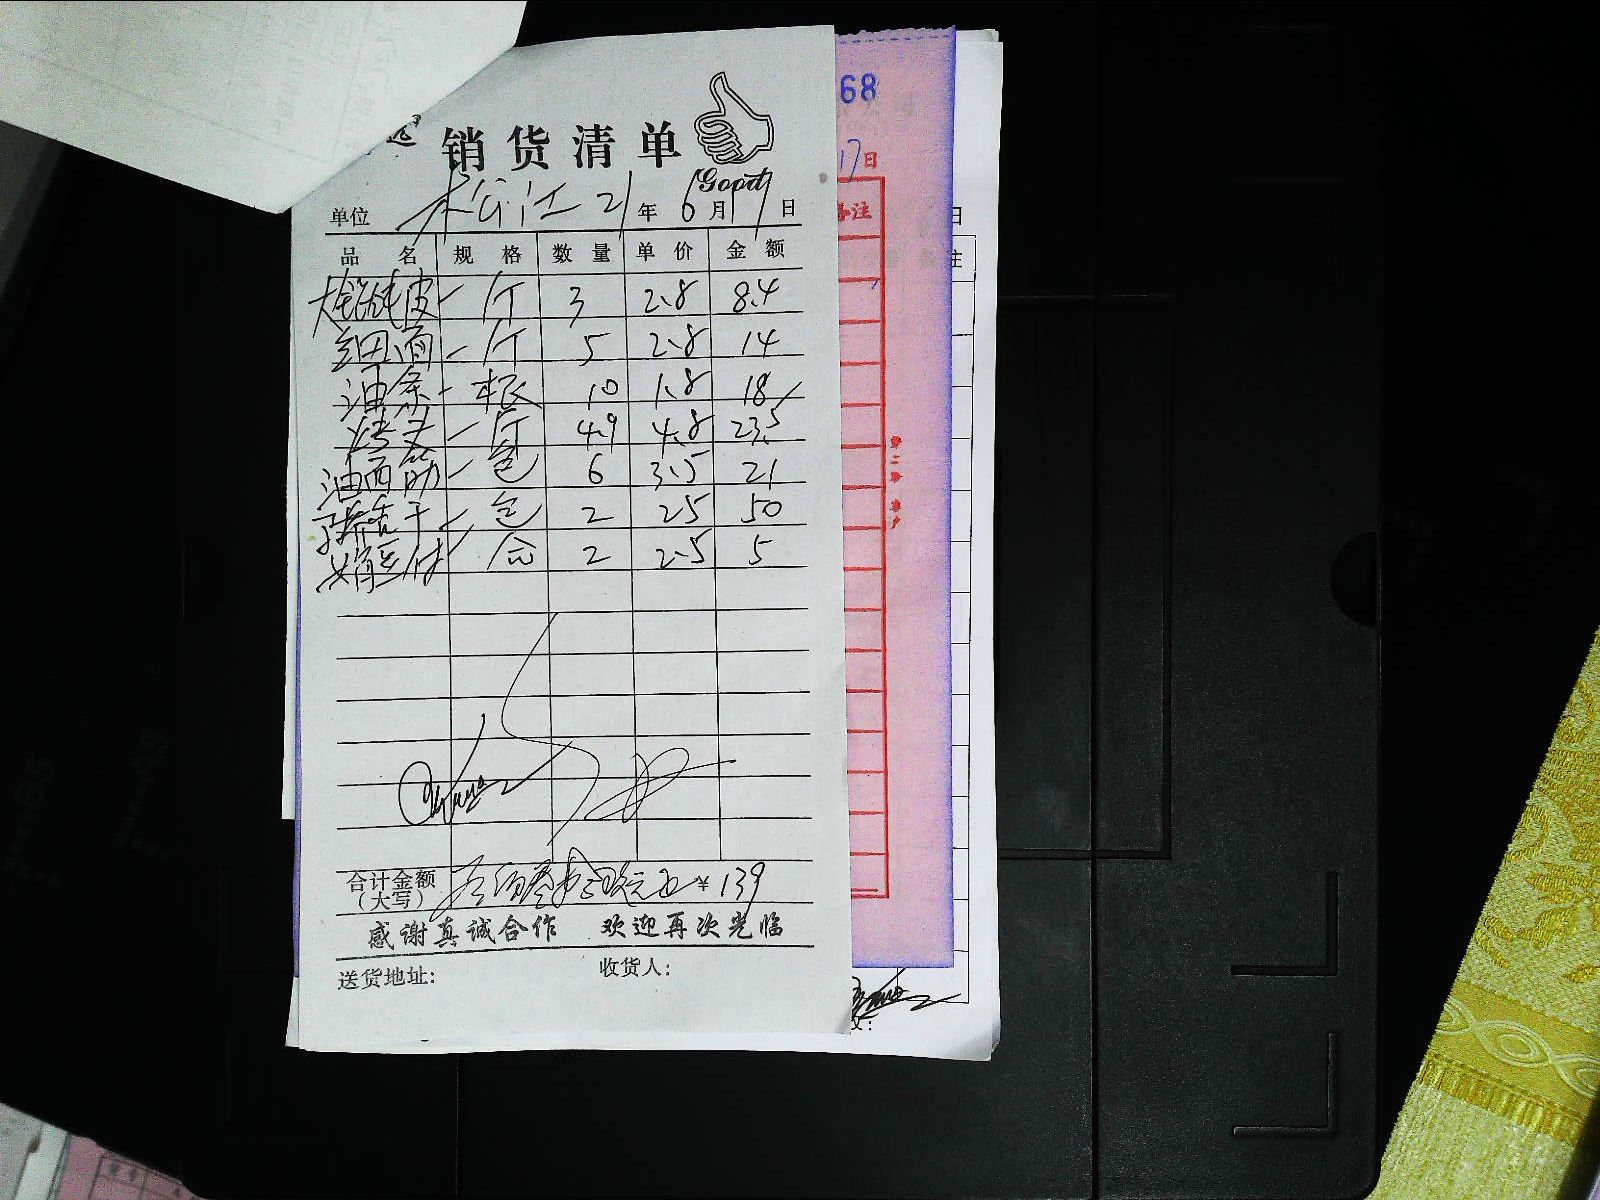 销货清单
Good
单位 松江 21年6月17日
品名 规格 数量 单价 金额
大馄饨皮 斤 3 2.8 8.4
细面 斤 5 2.8 14
油条 根 10 1.8 18
烤夫 斤 4.9 4.8 23.5
油面筋 包 6 3.5 21
包 2 25 50
合 2 2.5 5
合计金额
（大写） ¥139
感谢真诚合作 欢迎再次光临
送货地址： 收货人：
68
17日
备注
日
注